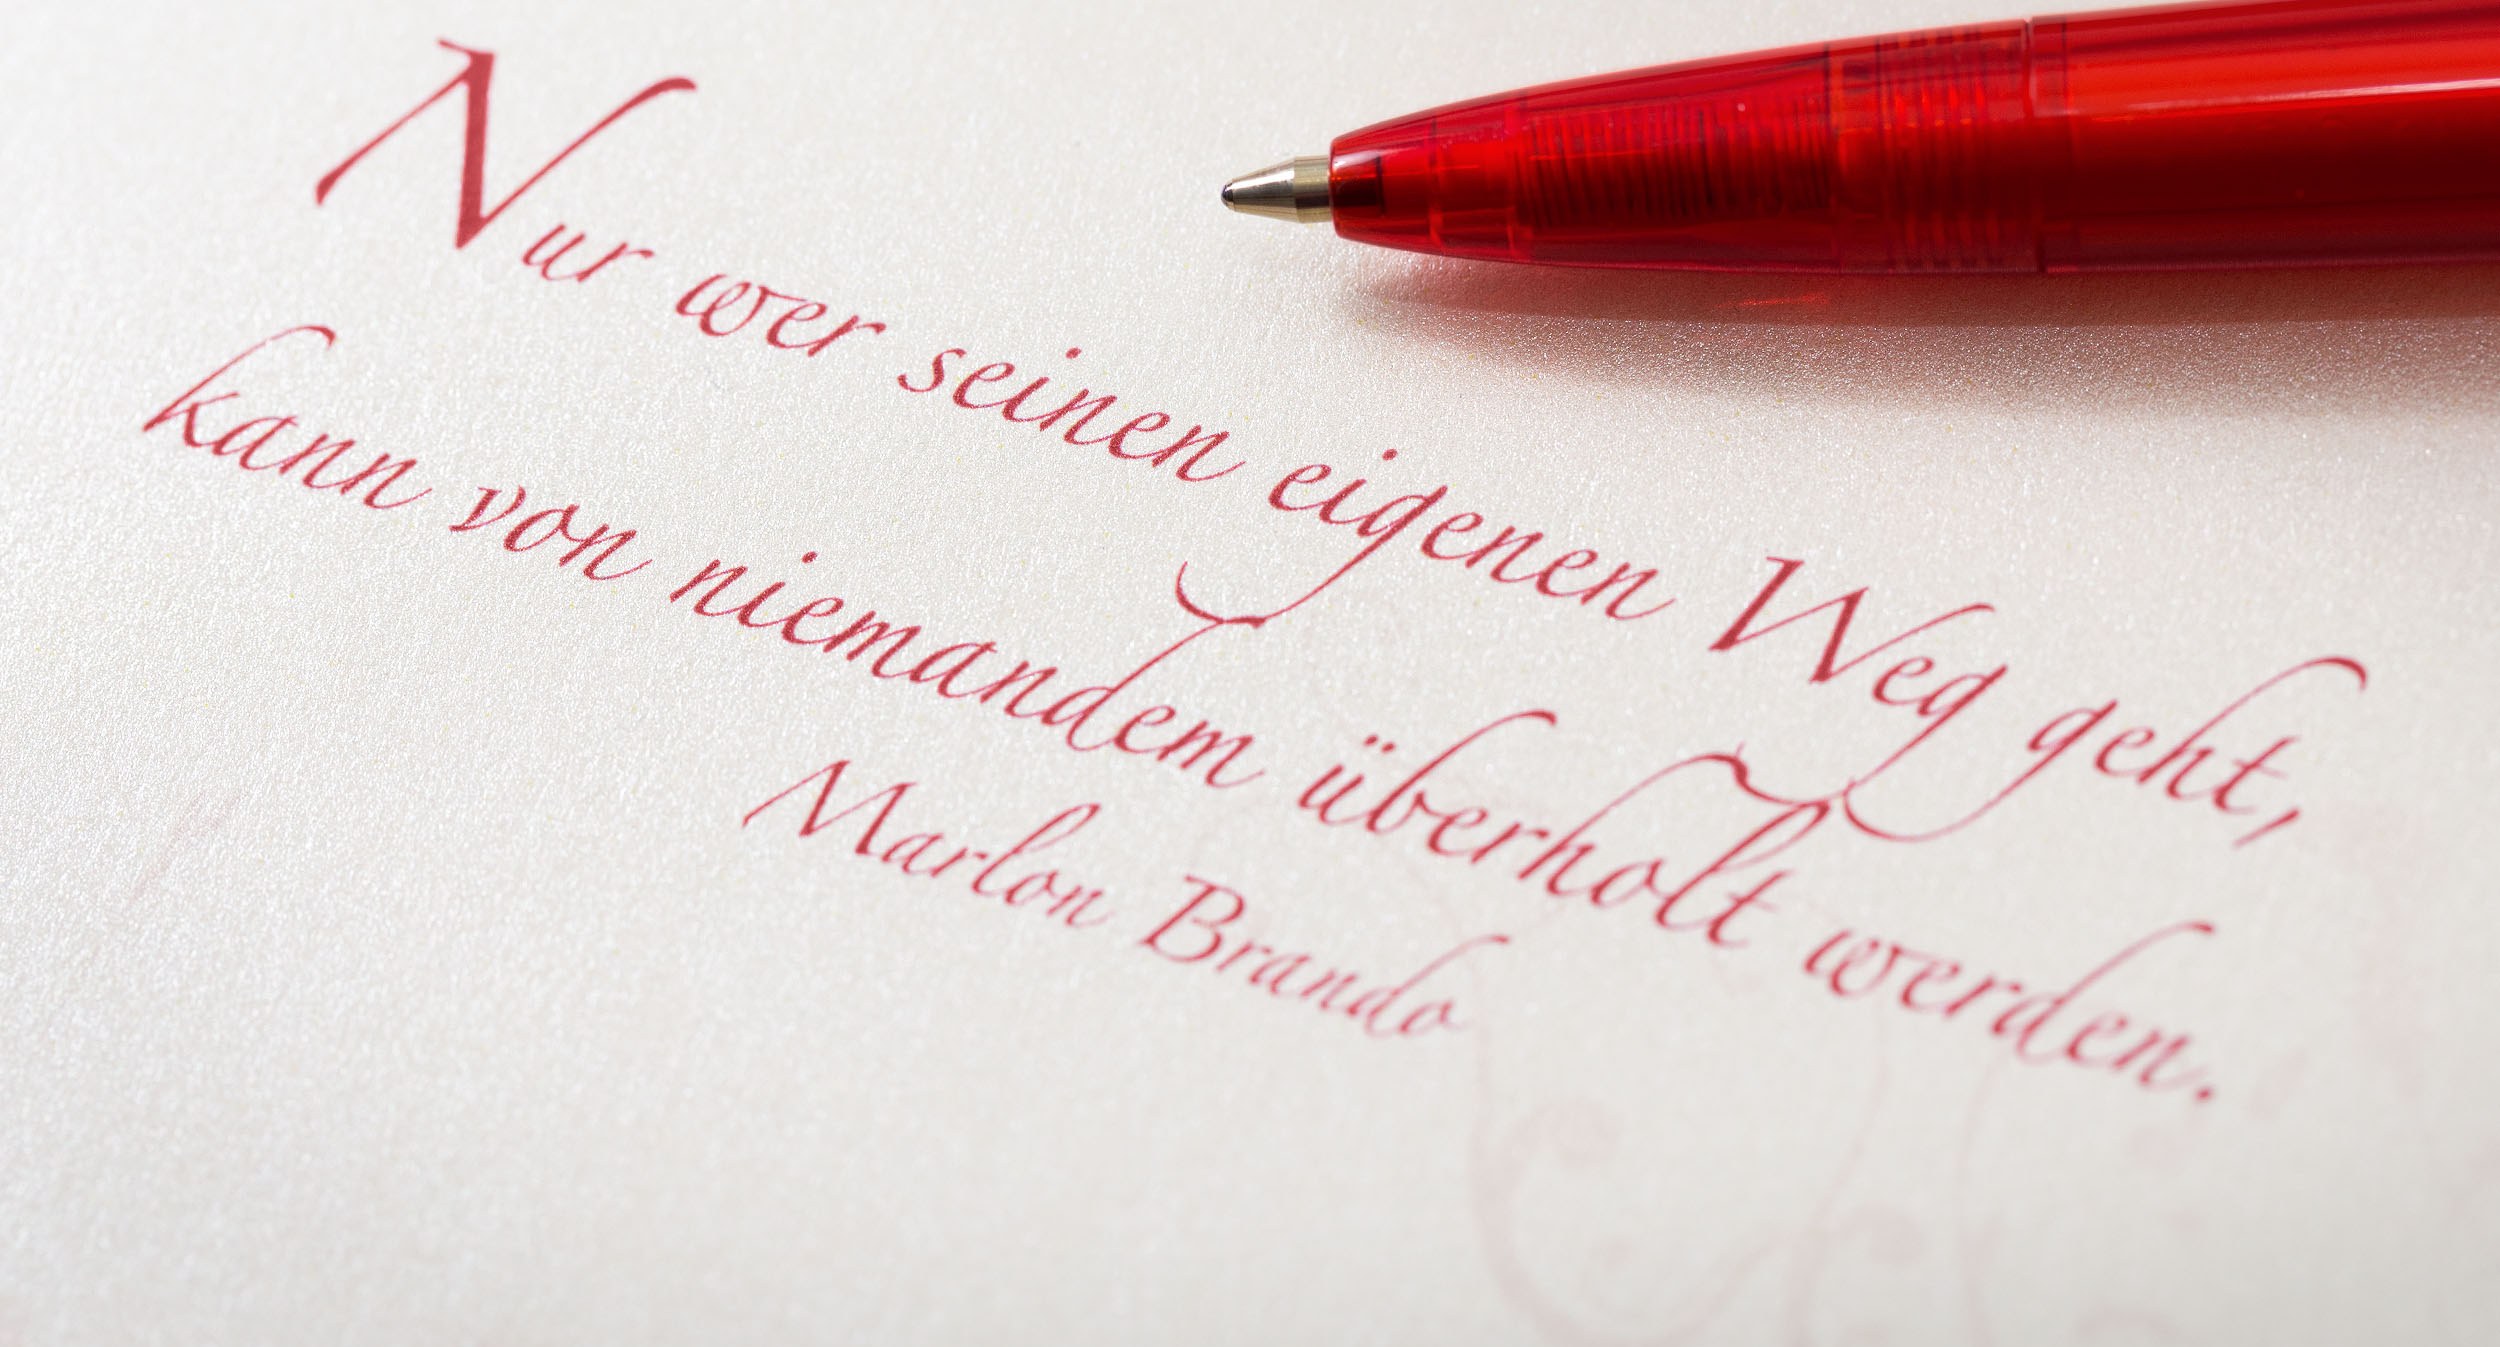 Nur wer seinen eigenen Weg geht,
kann von niemandem überholt werden.
Marlon Brando